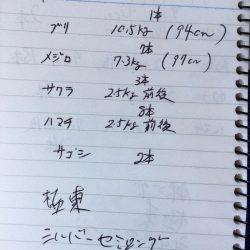 1本
ブリ 10.5kg (94cm)
7本
メジロ 7.3kg (97cm)
3本
サワラ 2.5kg 前後
8本
ハマチ 2.5kg 前後
サゴシ 2本
極東
シルバーセミロング